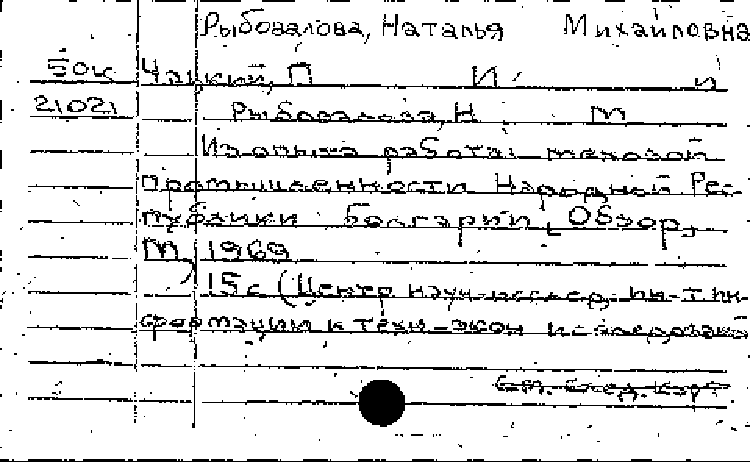 Рыбовалова, Наталья Михайловна
50к Чацкий, П И. и
21021 Рыбовалова, Н М
Из опыта работы меховой
промышленности Народной Рес-
публики Болгарии [Обзор]
М, 1969
15с (Центр науч-исслед. ин-т ин-
формации и техн-экон исследований
См. след. карт